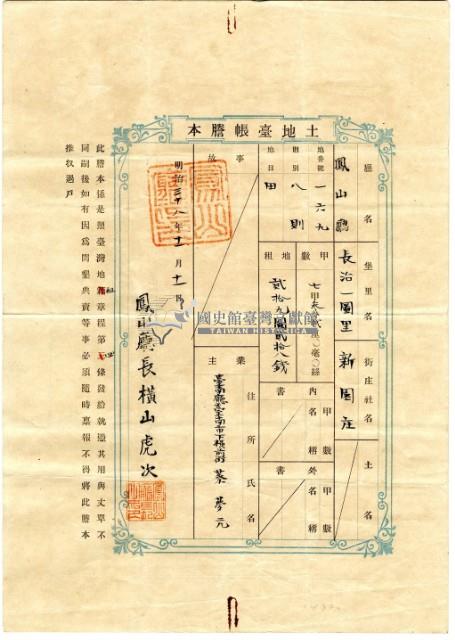 土地臺帳謄本
廳名
鳳山廳
堡里名
長治一圖里
街庄社名
新園庄
土名
地番號
一六九
則別
八則
地目
田
甲數
地租
內書
甲數
名稱
外書
甲數
名稱
事故
業主
住所
氏名
明治三十八年十一月十一日
鳳山廳長橫山虎次
此謄本係是照臺灣地租章程第四條發給就過其用與丈單不
同嗣後如有因為鬮墾典賣等事必須隨時稟報不得將此謄本
推收過戶
國史館臺灣文獻館
TAIWAN HISTORICA